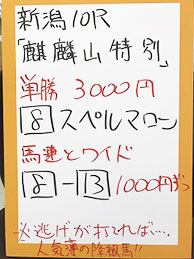 新潟10R
「麒麟山特別」
単勝 3000円
8 スペルマロン
馬連とワイド
8-13 1000円ずつ
必逃げが打てれば、…
人気薄の降級馬!!